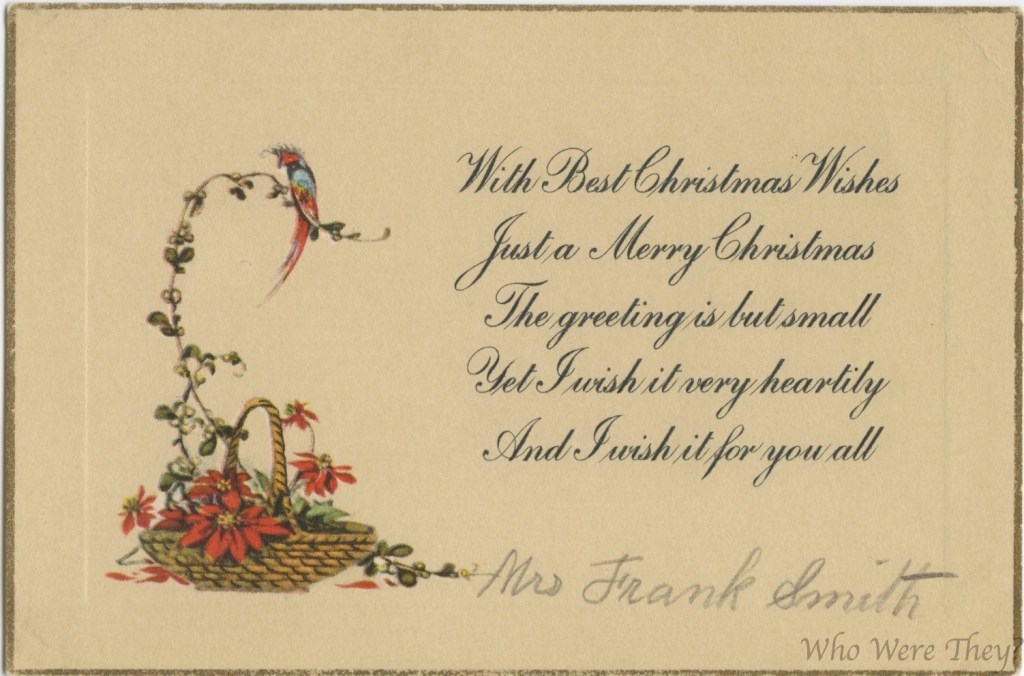 With Best Christmas Wishes
Just a Merry Christmas
The greeting is but small
Yet I wish it very heartily
And I wish it for you all
Mrs Frank Smith
Who Were They?